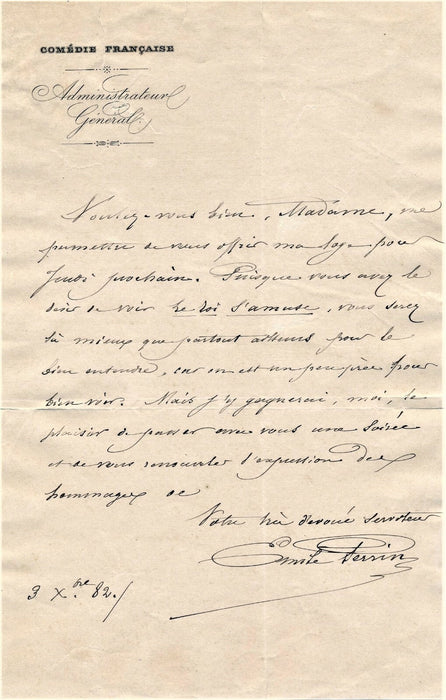 COMÉDIE FRANÇAISE
Administrateur
Général.
Voulez-vous bien, Madame, me
permettre de vous offrir ma loge pour
Jeudi prochain. Puisque vous avez le
désir de voir Le Roi s'amuse, vous serez
là mieux que partout ailleurs pour le
bien entendre, car on est un peu près pour
bien voir. Mais j'y gagnerai, moi, le
plaisir de passer avec vous une soirée
et de vous renouveler l'expression des
hommages de
Votre très dévoué serviteur
Emile Perrin
3 Xbre. 82./